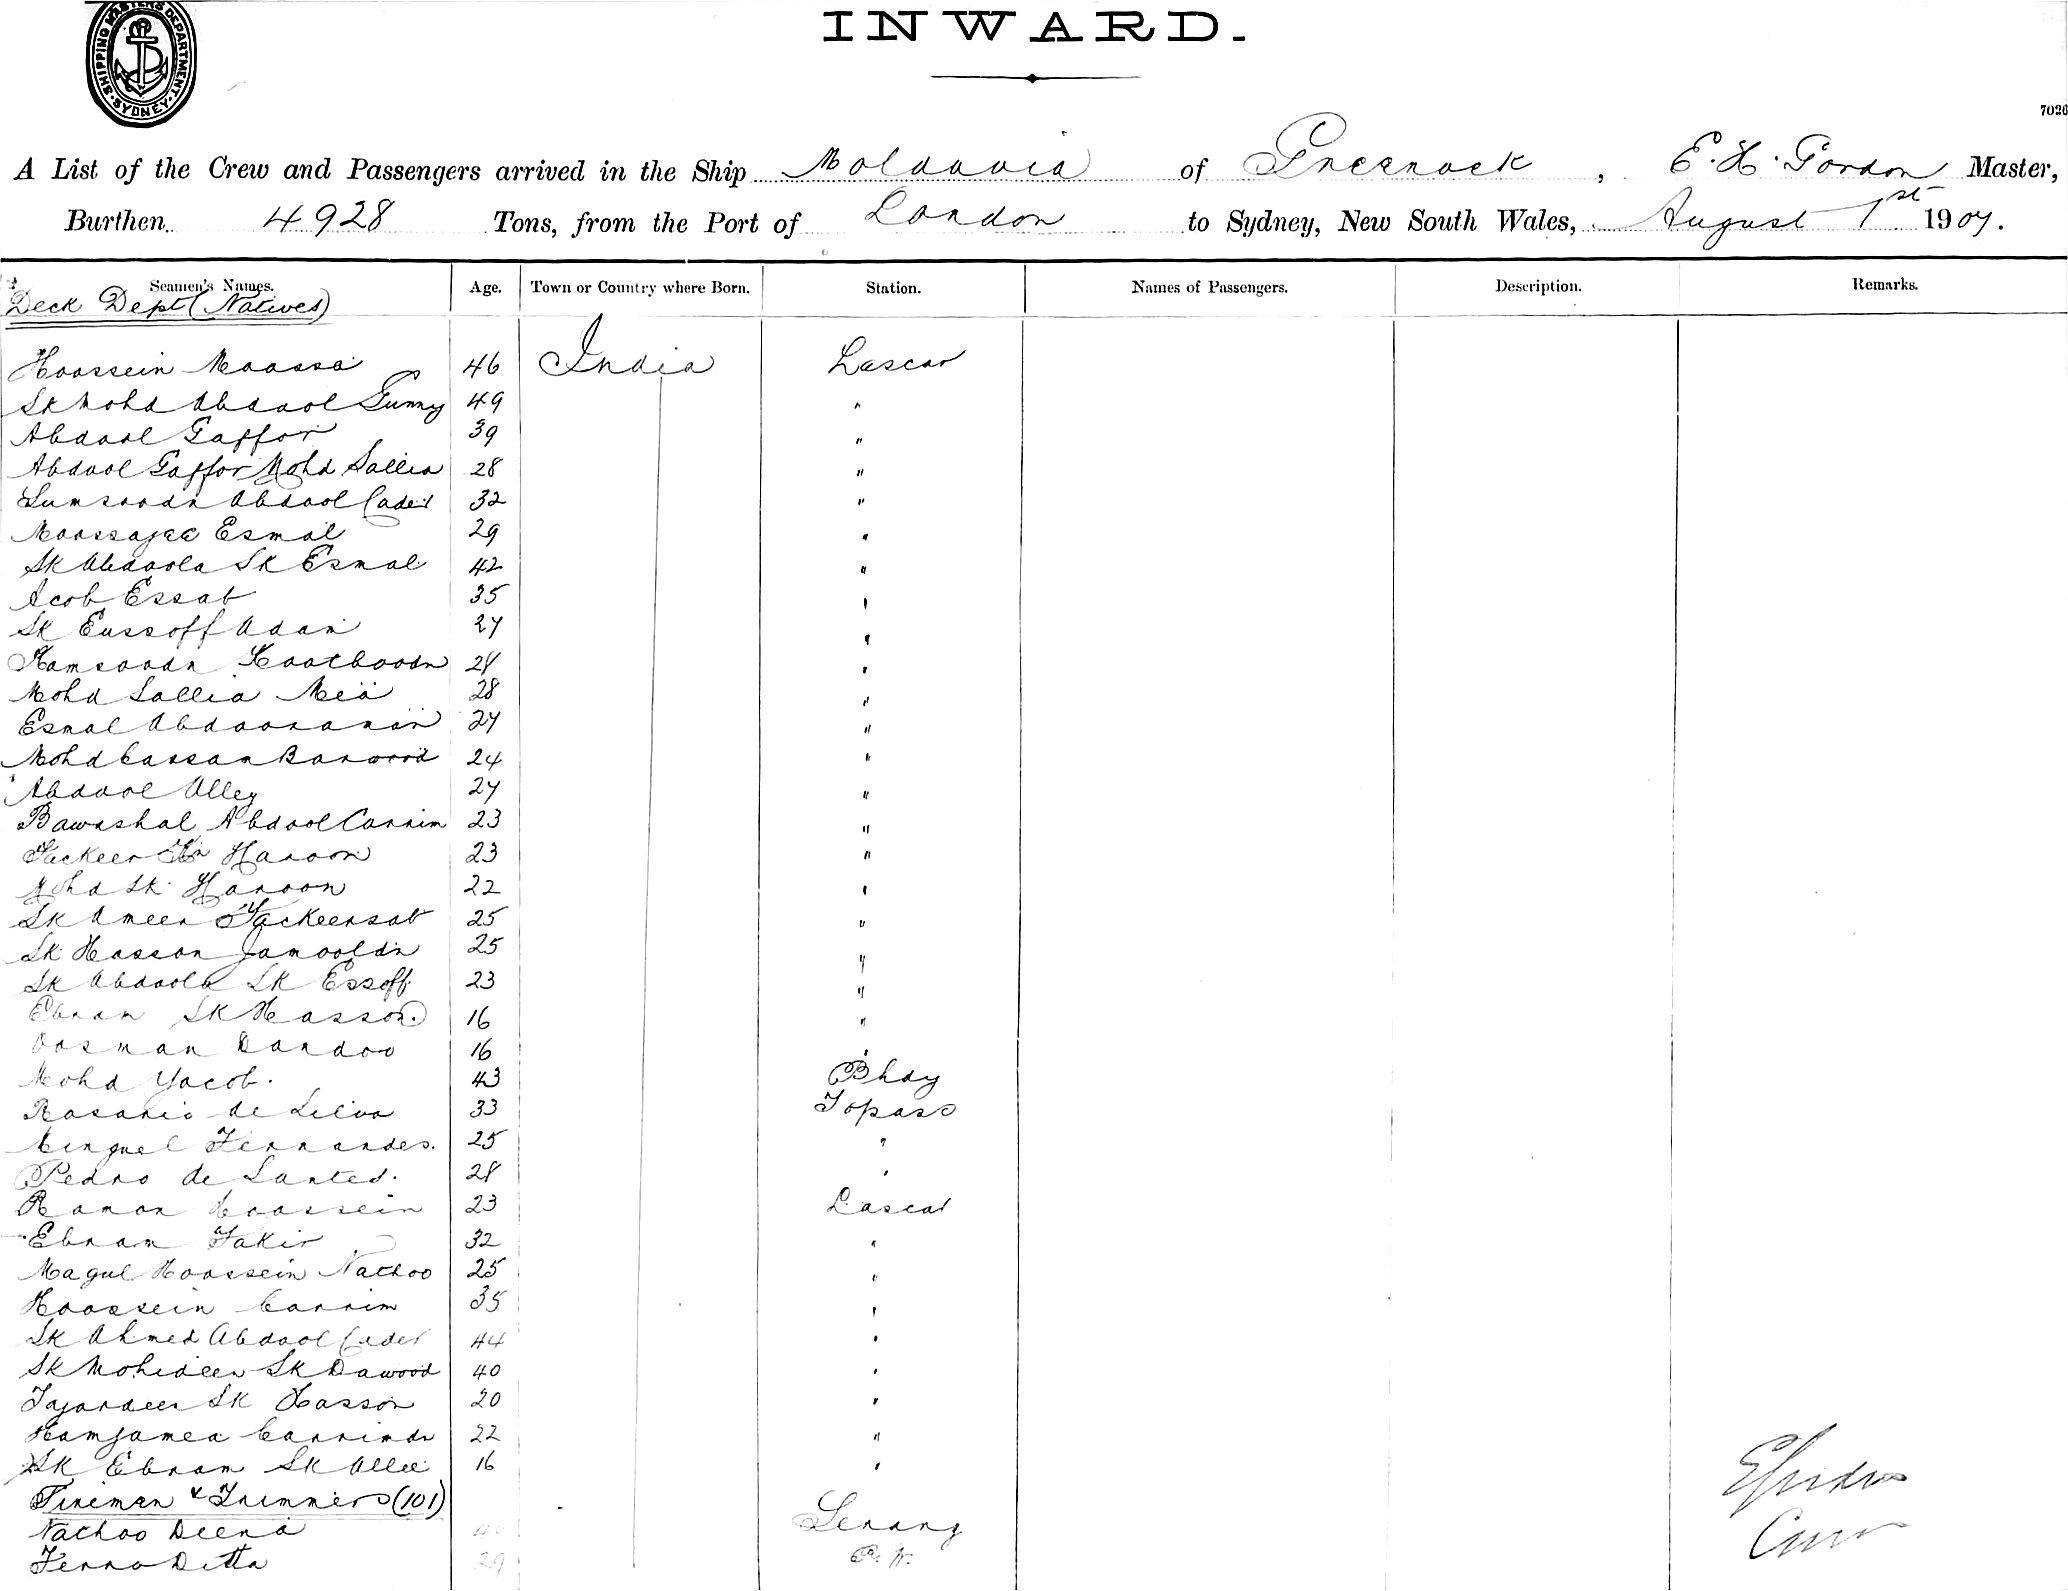 SHIPPING MASTERS DEPARTMENT · SYDNEY ·
INWARD.
7026
A List of the Crew and Passengers arrived in the Ship Moldavia of Greenock, E. H. Gordon Master,
Burthen 4928 Tons, from the Port of London to Sydney, New South Wales, August 1st 1907.
Seamen's Names. Age. Town or Country where Born. Station. Names of Passengers. Description. Remarks.
Deck Dept (Natives)
Hoossein Moossa 46 India Lascar
Sk Mohd Abdool Gunny 49 "
Abdool Gaffor 39 "
Abdool Gaffor Mohd Sallia 28 "
Abdool Cader 32 "
Moossajee Esmal 29 "
Sk Abdoola Sk Esmal 42 "
Acob Essab 35 "
Sk Eussoff Adam 27 "
Kamroodn Kootboodn 28 "
Mohd Sallia Meia 28 "
Esmal Abdooraman 27 "
Mohd Cassam Bawood 24 "
Abdool Alley 27 "
Bawashal Abdool Carrim 23 "
Fackeer Haroon 23 "
Mohd Sk Haroon 22 "
Sk Ameer Fackeersab 25 "
Sk Hasson Jamooldn 25 "
Sk Abdoola Sk Essoff 23 "
Ebram Sk Hasson. 16 "
Oosman Dandoo 16 "
Mohd Yacob. 43 Bhdy
Rosario de Silva 33 Topass
Minguel Fernandes. 25 "
Pedro de Santes. 28 "
Raman Hoossein 23 Lascar
Ebram Fakir 32 "
Magul Hoossein Nathoo 25 "
Hoossein Carrim 35 "
Sk Ahmed Abdool Cader 44 "
Sk Mohideen Sk Dawood 40 "
Tajordeen Sk Hasson 20 "
Kamjamea Carrimdn 22 "
Sk Ebram Sk Allee 16 "
Firemen & Trimmers (101)
Nathoo Deena Serang
Ferro Ditta 29